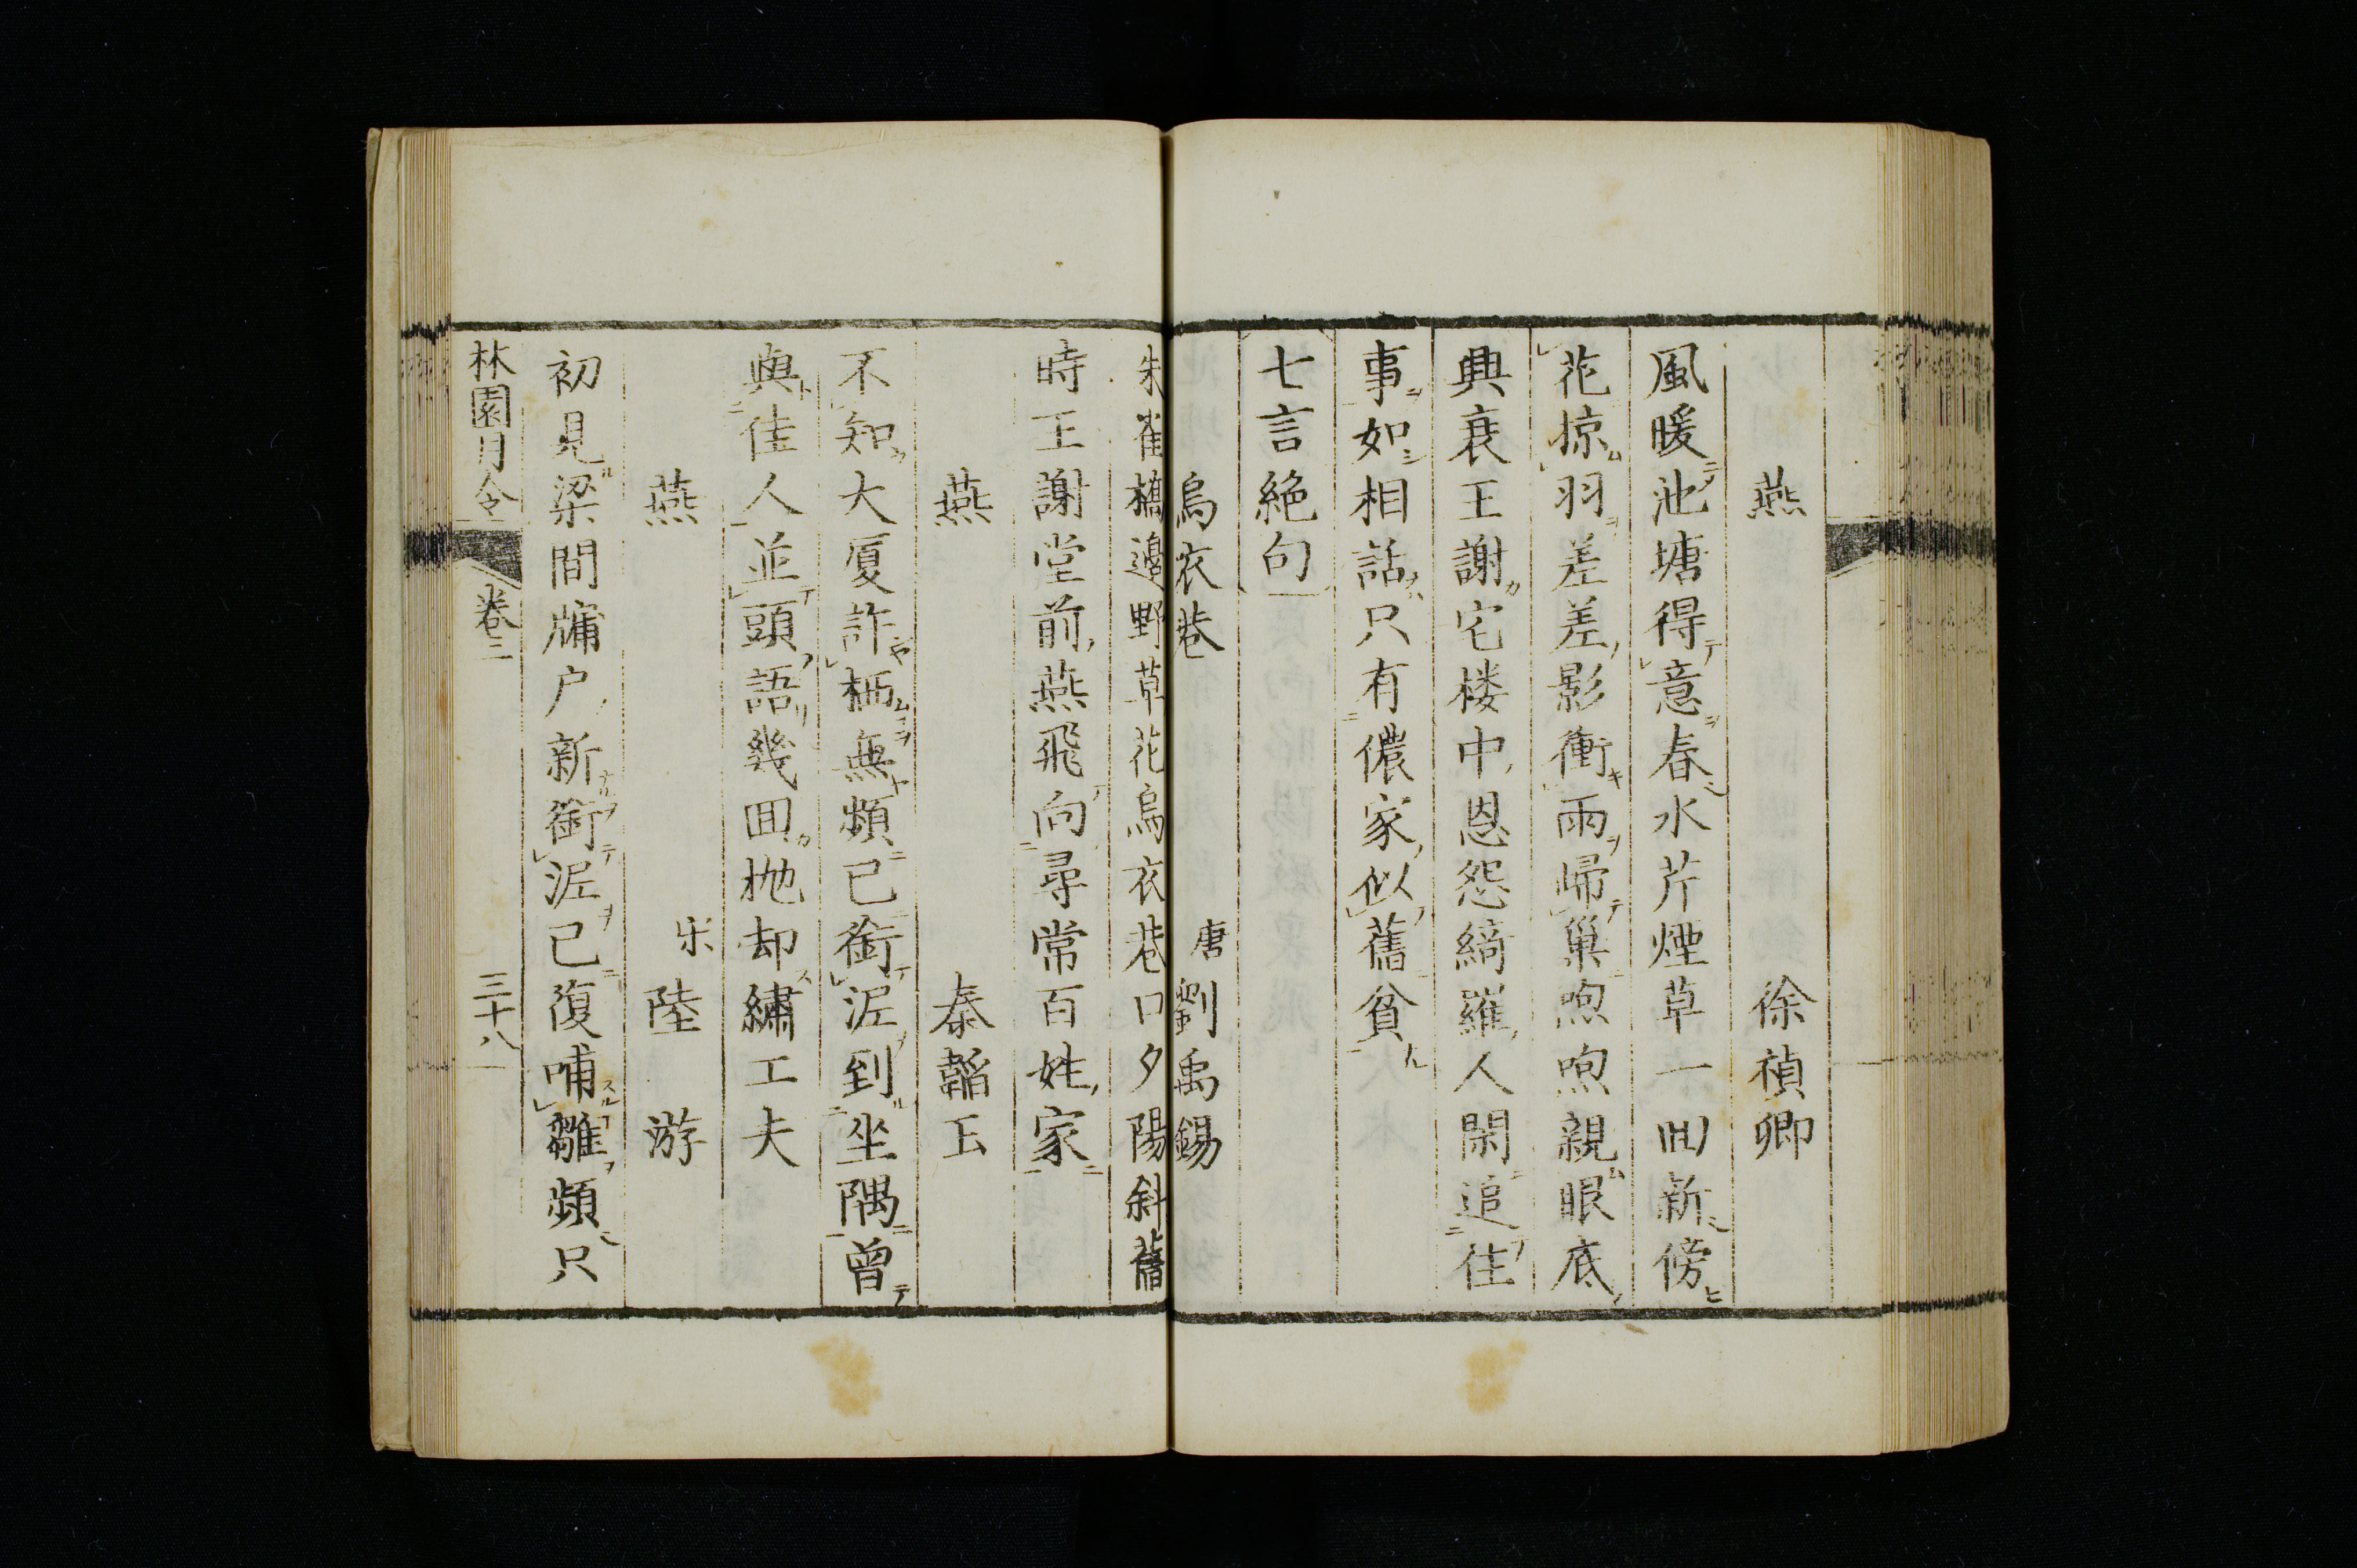 燕　徐禎卿
風暖池塘得意春水芹煙草一回新傍
花掠羽差差影衝雨歸巢喣喣親眼底
興衰王謝宅楼中恩怨綺羅人閑追往
事如相話只有儂家似舊貧
七言絶句
烏衣巷　唐劉禹錫
朱雀橋邊野草花烏衣巷口夕陽斜舊
時王謝堂前燕飛向尋常百姓家
燕　秦韜玉
不知大厦許栖無頻已銜泥到坐隅曾
與佳人並頭語幾回抛却繡工夫
燕　宋陸游
初見梁間牖户新銜泥已復哺雛頻只
林園月令　卷三　三十八